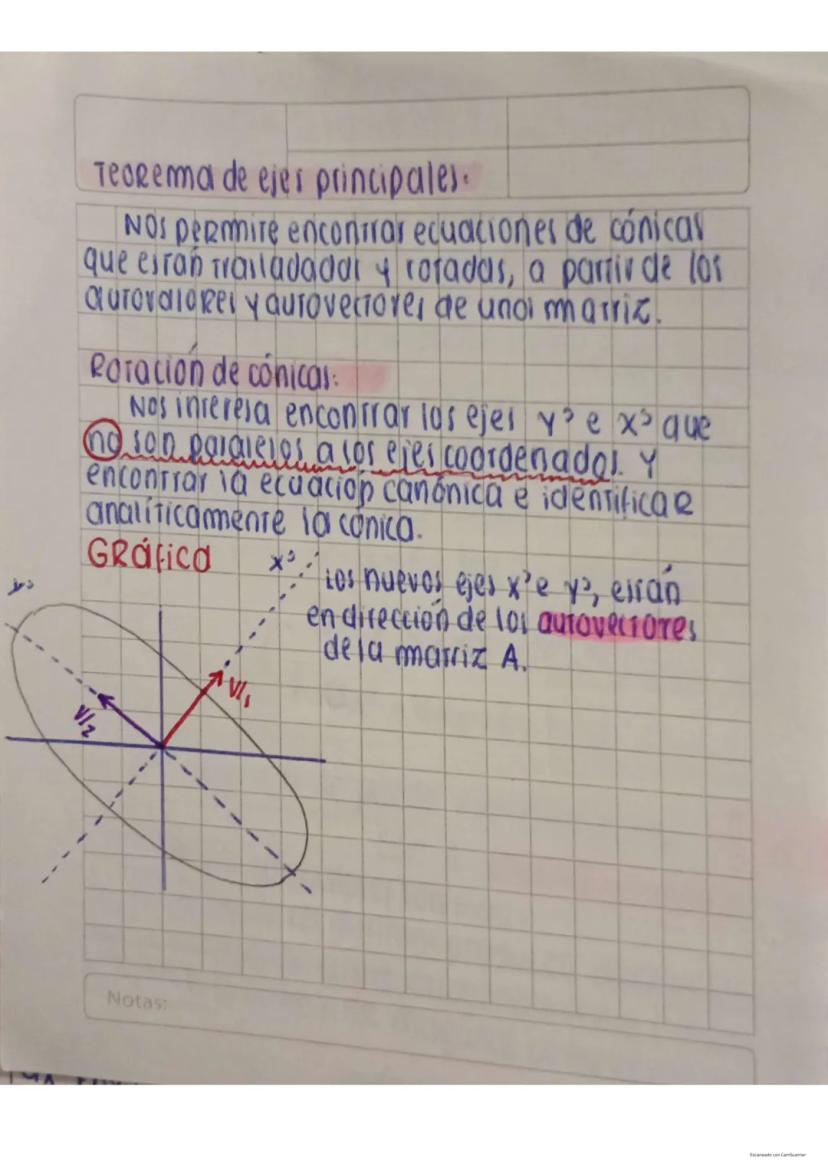 Teorema de ejes principales.
Nos permite encontrar ecuaciones de cónicas
que están trasladadas y rotadas, a partir de los
autovalores y autovectores de una matriz.
Rotación de cónicas:
Nos interesa encontrar los ejes y' e x' que
no son paralelos a los ejes coordenados. Y
encontrar la ecuación canónica e identificar
analíticamente la cónica.
Gráfica
x'
Los nuevos ejes x' e y', están
en dirección de los autovectores
de la matriz A.
y'
V1
V2
Notas:
Escaneado con CamScanner